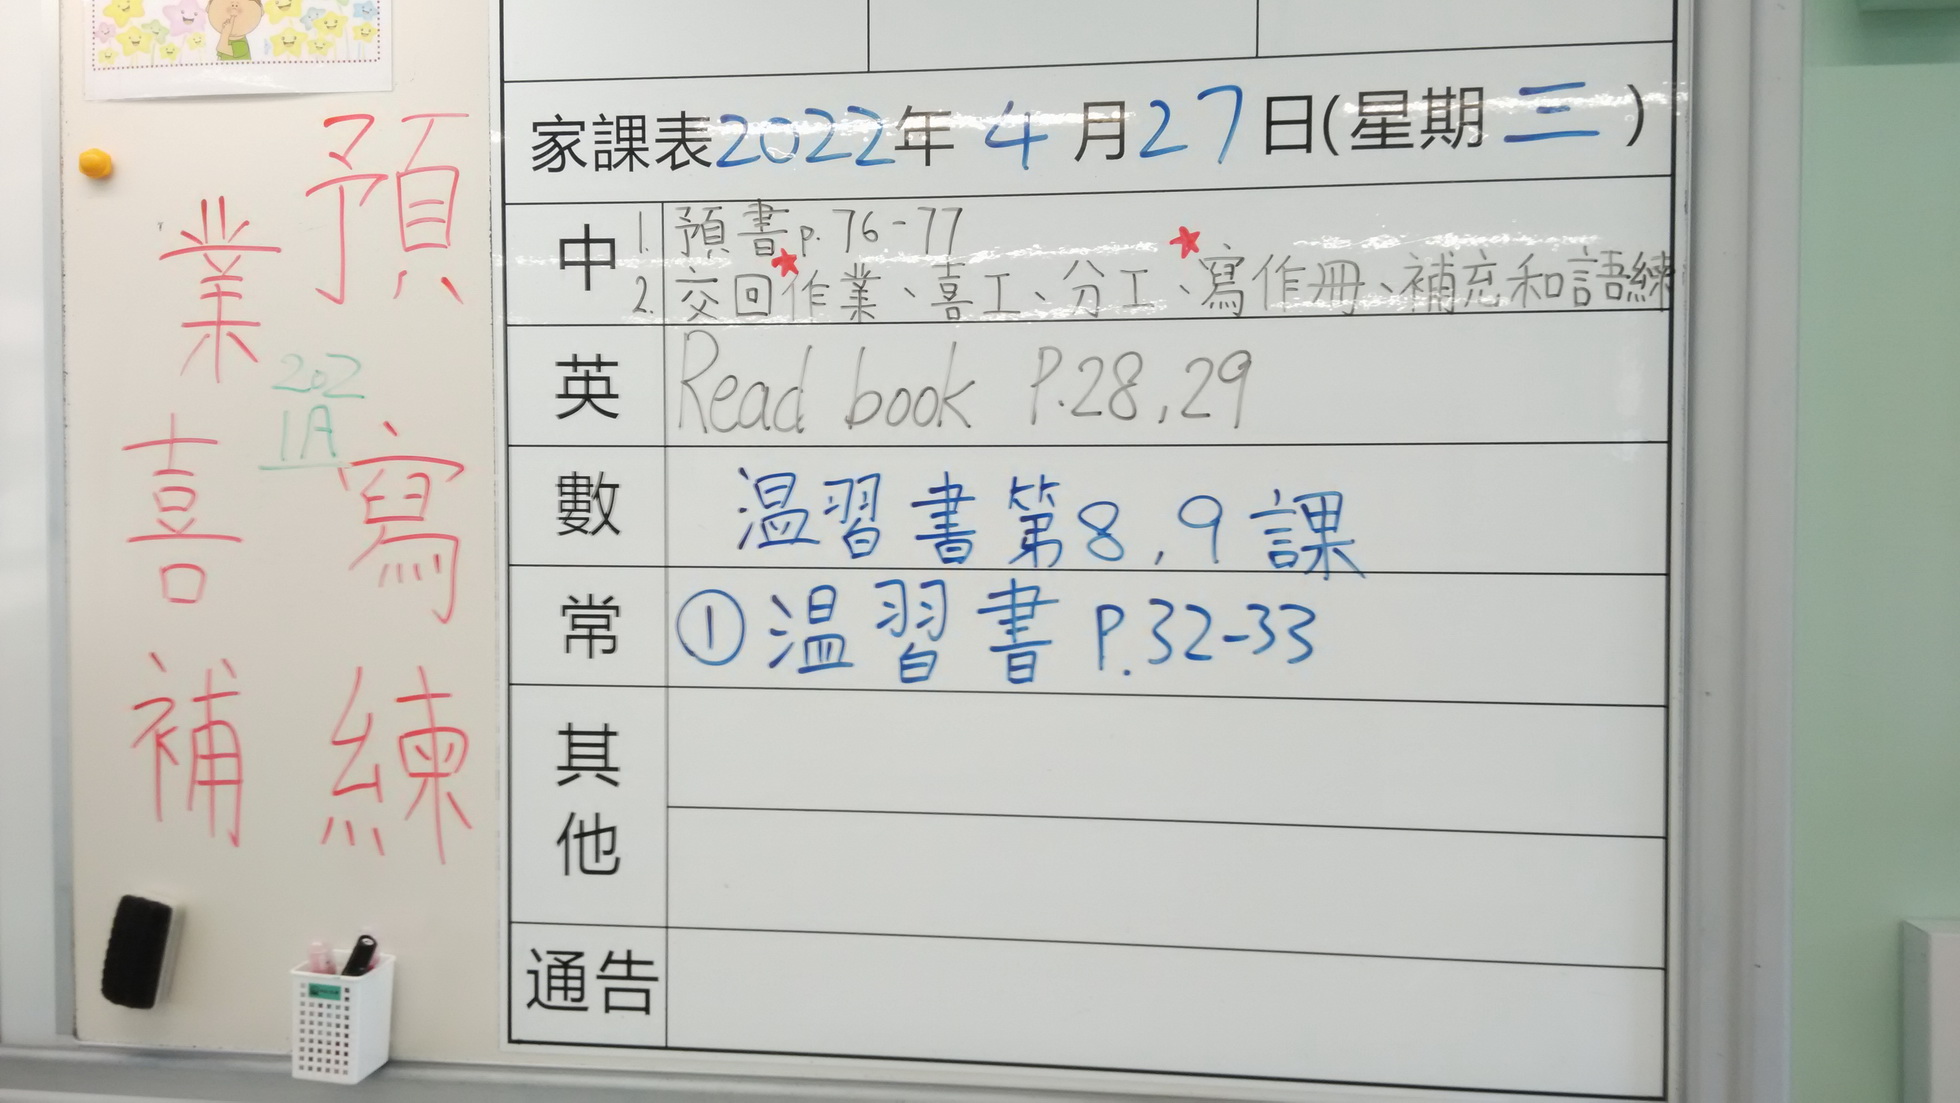 預
業
202
1A
喜
寫
補
練
家課表2022年4月27日(星期三)
中
1. 預書p.76-77
2. 交回作業、喜工、分工、寫作冊、補充和語練
英
Read book P.28,29
數
温習書第8,9課
常
①温習書 P.32-33
其
他
通告